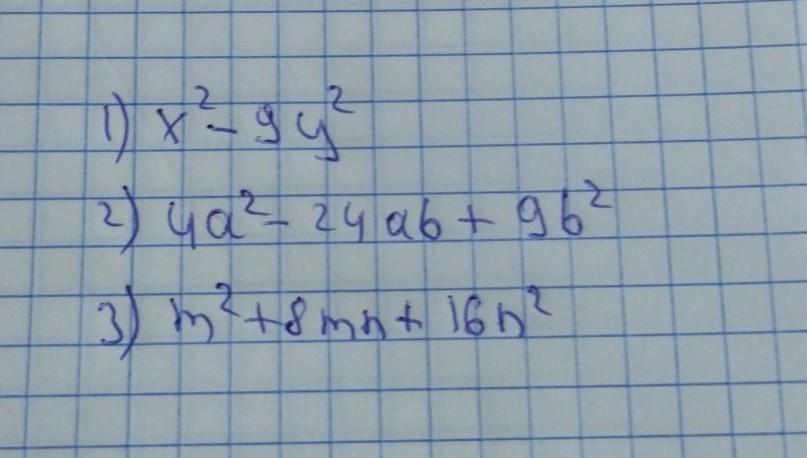 1) x² - 9y²
2) 4a² - 24ab + 9b²
3) m² + 8mn + 16n²